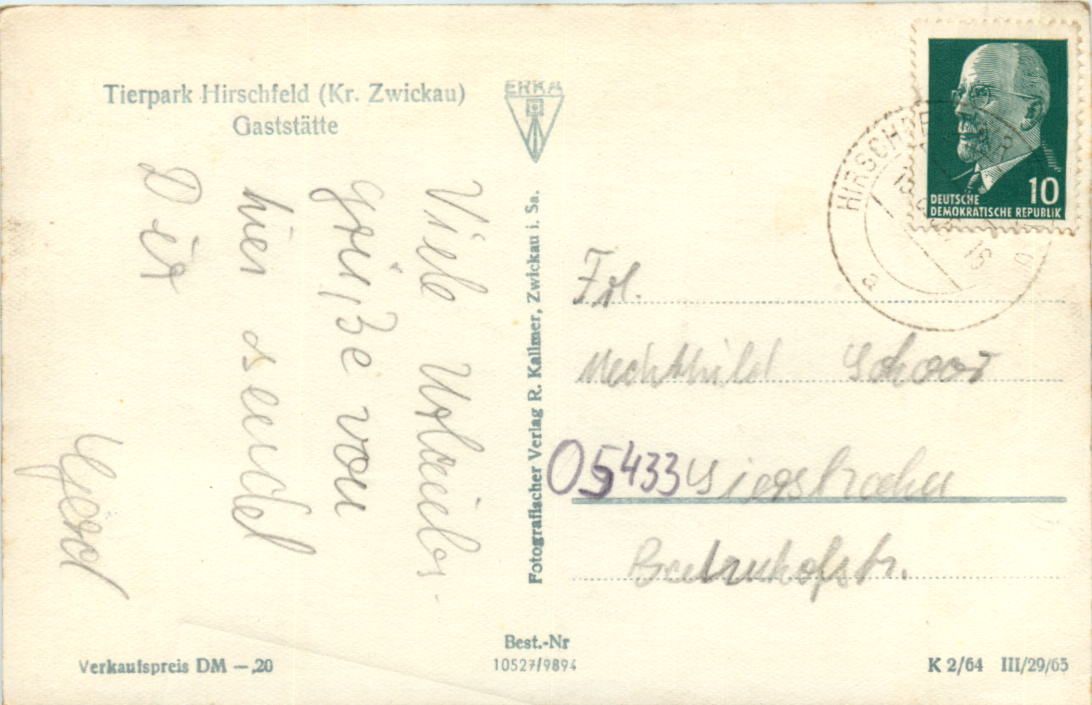 Tierpark Hirschfeld (Kr. Zwickau)
Gaststätte
ERKA
Viele Urlaubs-
grüße von
hier sendet
Dir
Gerd
Fotografischer Verlag R. Kallmer, Zwickau i. Sa.
10
DEUTSCHE
DEMOKRATISCHE REPUBLIK
a
Frl.
Mechthild Schoor
05433
Bahnhofstr.
Verkaufspreis DM —,20
Best.-Nr
10527/9894
K 2/64 III/29/65